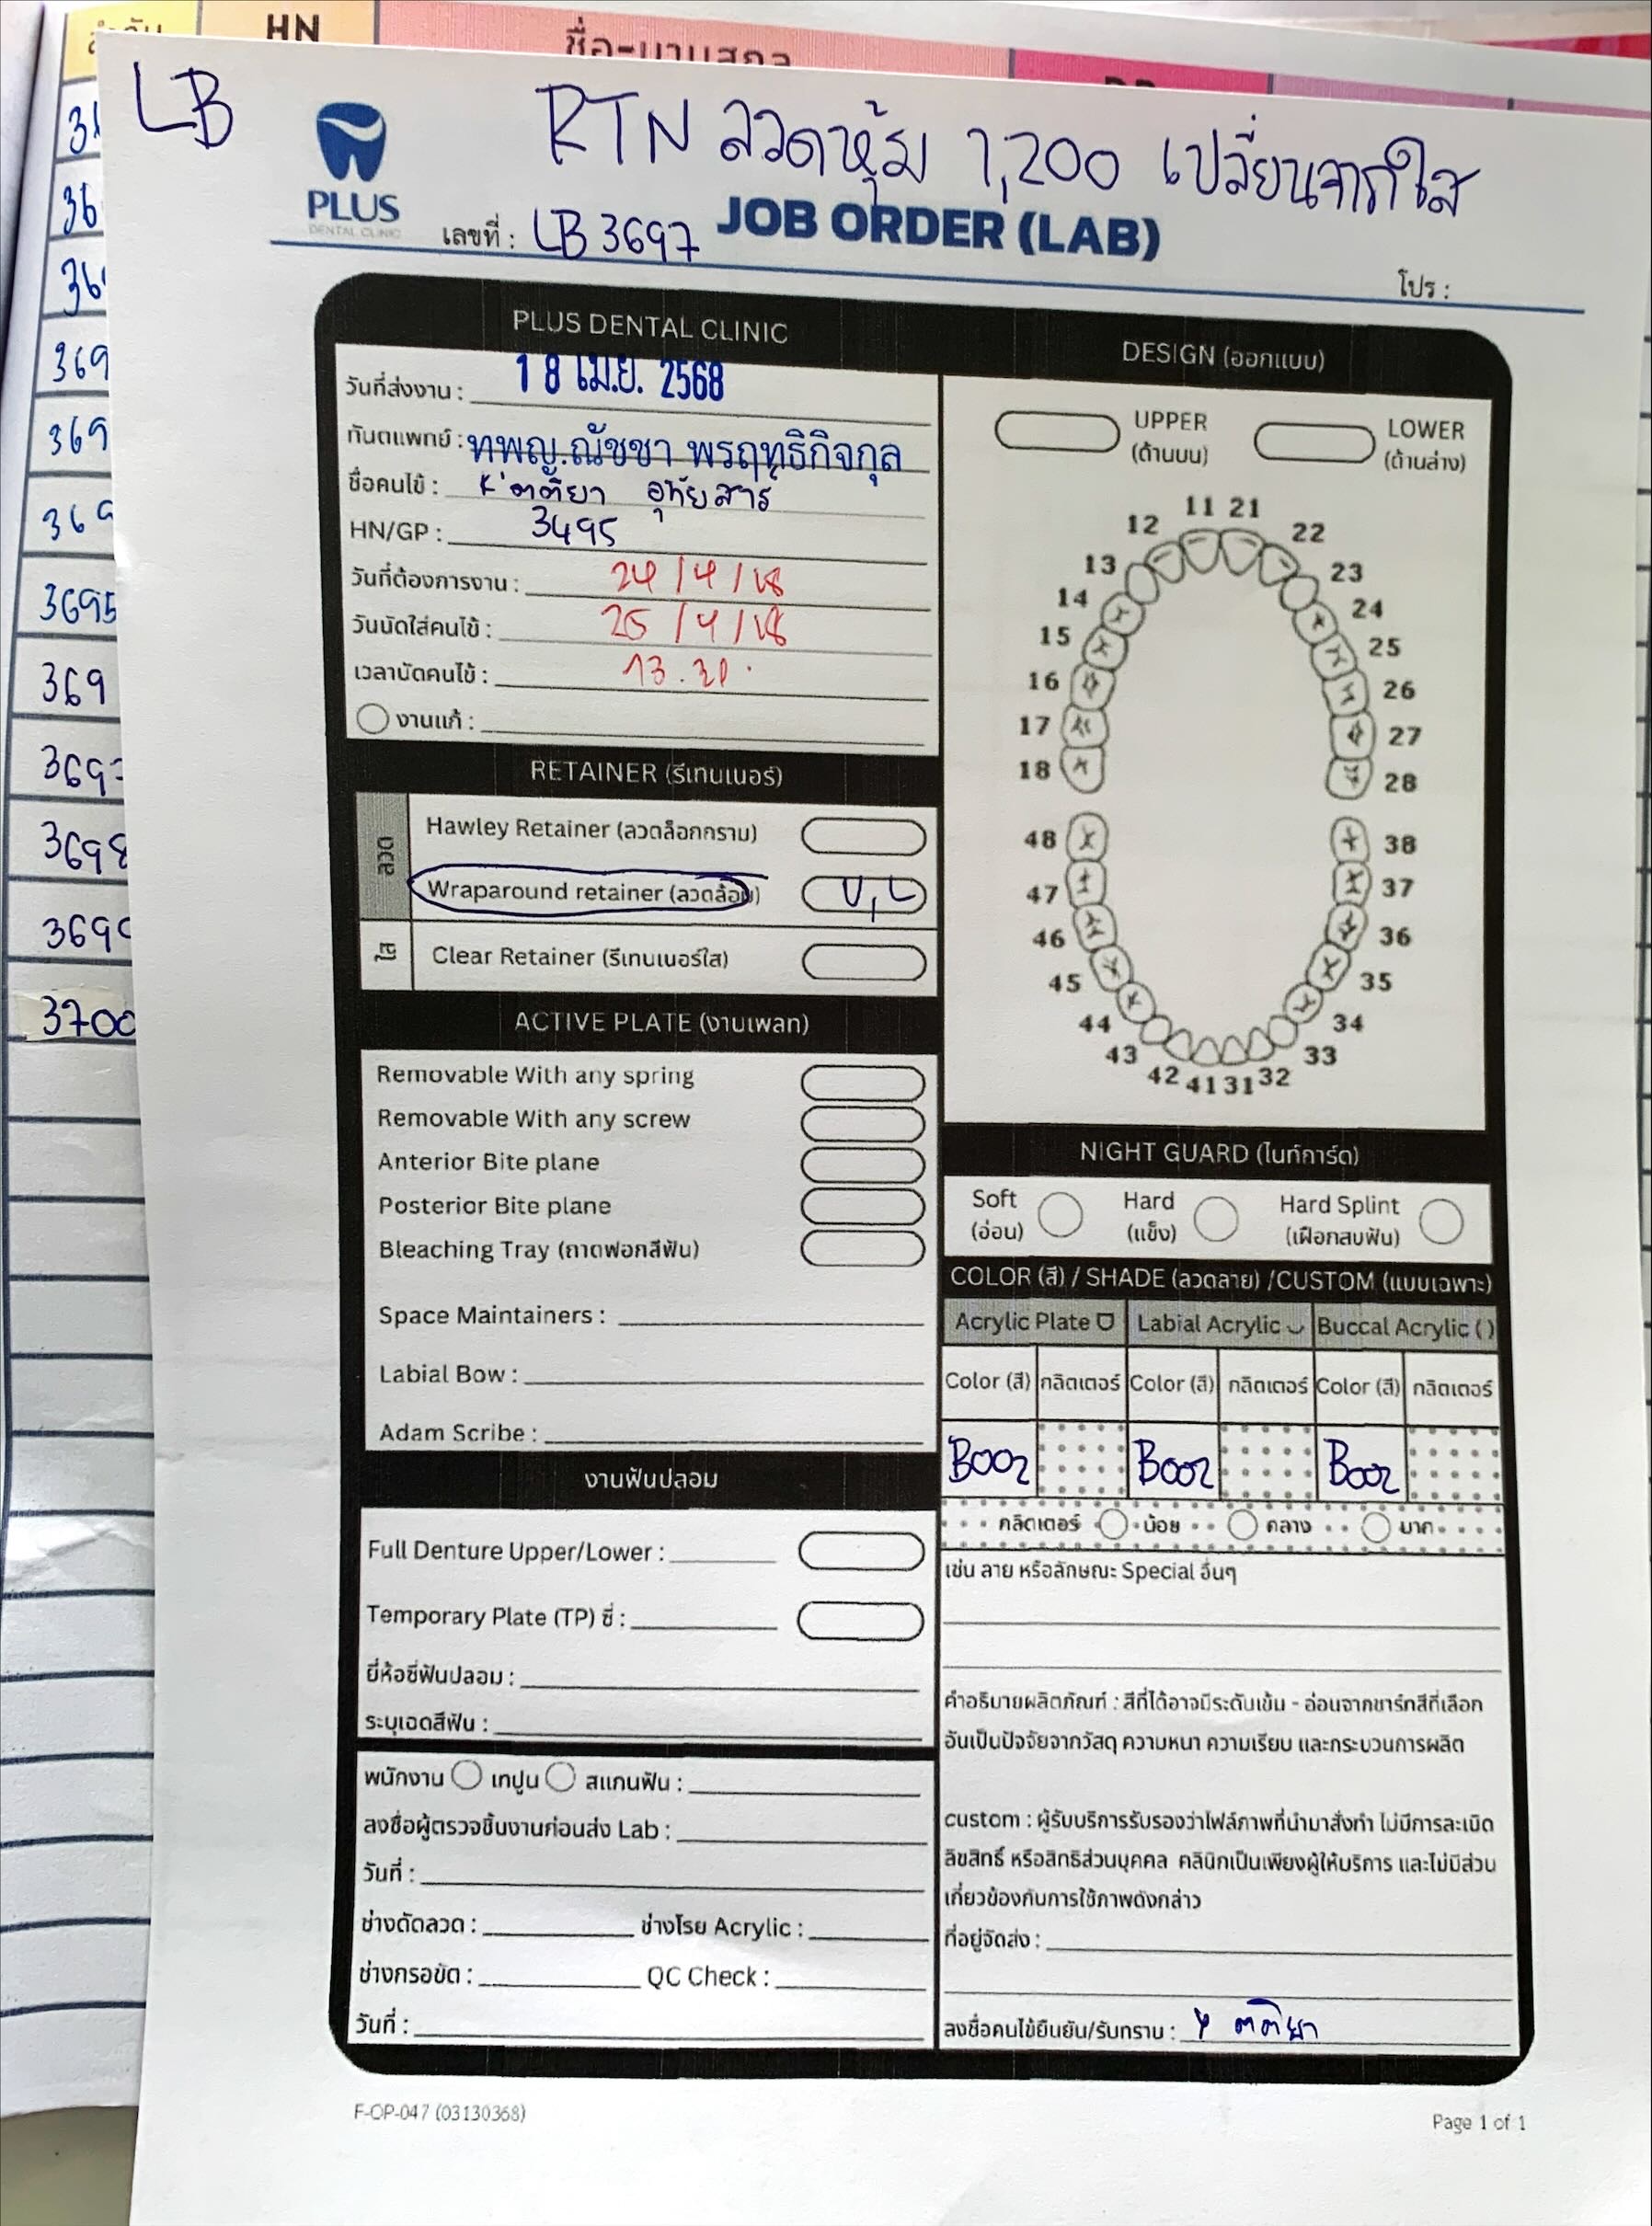 HN
ชื่อ-นามสกุล
LB
RTN ลวดหุ้ม 1,200 เปลี่ยนจากใส
PLUS
DENTAL CLINIC
เลขที่ : LB 3697
JOB ORDER (LAB)
โปร :
PLUS DENTAL CLINIC
วันที่ส่งงาน : 18 เม.ย. 2568
ทันตแพทย์ : ทพญ.ณัชชา พรฤทธิกิจกุล
ชื่อคนไข้ : ตติยา อุทัยสาร์
HN/GP : 3495
วันที่ต้องการงาน : 24/4/68
วันนัดใส่คนไข้ : 25/4/68
เวลานัดคนไข้ : 13.30
งานแก้ :
RETAINER (รีเทนเนอร์)
ลวด
Hawley Retainer (ลวดล็อกกราม)
Wraparound retainer (ลวดล้อม) U,L
ใส
Clear Retainer (รีเทนเนอร์ใส)
ACTIVE PLATE (งานเพลท)
Removable With any spring
Removable With any screw
Anterior Bite plane
Posterior Bite plane
Bleaching Tray (ถาดฟอกสีฟัน)
Space Maintainers :
Labial Bow :
Adam Scribe :
งานฟันปลอม
Full Denture Upper/Lower :
Temporary Plate (TP) ซี่ :
ยี่ห้อซี่ฟันปลอม :
ระบุเฉดสีฟัน :
พนักงาน เทปูน สแกนฟัน :
ลงชื่อผู้ตรวจชิ้นงานก่อนส่ง Lab :
วันที่ :
ช่างดัดลวด : ช่างโรย Acrylic :
ช่างกรอขัด : QC Check :
วันที่ :
DESIGN (ออกแบบ)
UPPER
(ด้านบน)
LOWER
(ด้านล่าง)
11 21
12 22
13 23
14 24
15 25
16 26
17 27
18 28
48 38
47 37
46 36
45 35
44 34
43 33
42 41 31 32
NIGHT GUARD (ไนท์การ์ด)
Soft
(อ่อน)
Hard
(แข็ง)
Hard Splint
(เฝือกสบฟัน)
COLOR (สี) / SHADE (ลวดลาย) /CUSTOM (แบบเฉพาะ)
Acrylic Plate Labial Acrylic Buccal Acrylic ( )
Color (สี) กลิตเตอร์ Color (สี) กลิตเตอร์ Color (สี) กลิตเตอร์
B002 B002 B002
กลิตเตอร์ น้อย กลาง มาก
เช่น ลาย หรือลักษณะ Special อื่นๆ
คำอธิบายผลิตภัณฑ์ : สีที่ได้อาจมีระดับเข้ม - อ่อนจากชาร์ทสีที่เลือก
อันเป็นปัจจัยจากวัสดุ ความหนา ความเรียบ และกระบวนการผลิต
custom : ผู้รับบริการรับรองว่าไฟล์ภาพที่นำมาสั่งทำ ไม่มีการละเมิด
ลิขสิทธิ์ หรือสิทธิส่วนบุคคล คลินิกเป็นเพียงผู้ให้บริการ และไม่มีส่วน
เกี่ยวข้องกับการใช้ภาพดังกล่าว
ที่อยู่จัดส่ง :
ลงชื่อคนไข้ยืนยัน/รับทราบ : ตติยา
F-OP-047 (03130368)
Page 1 of 1
3695
3698
3700